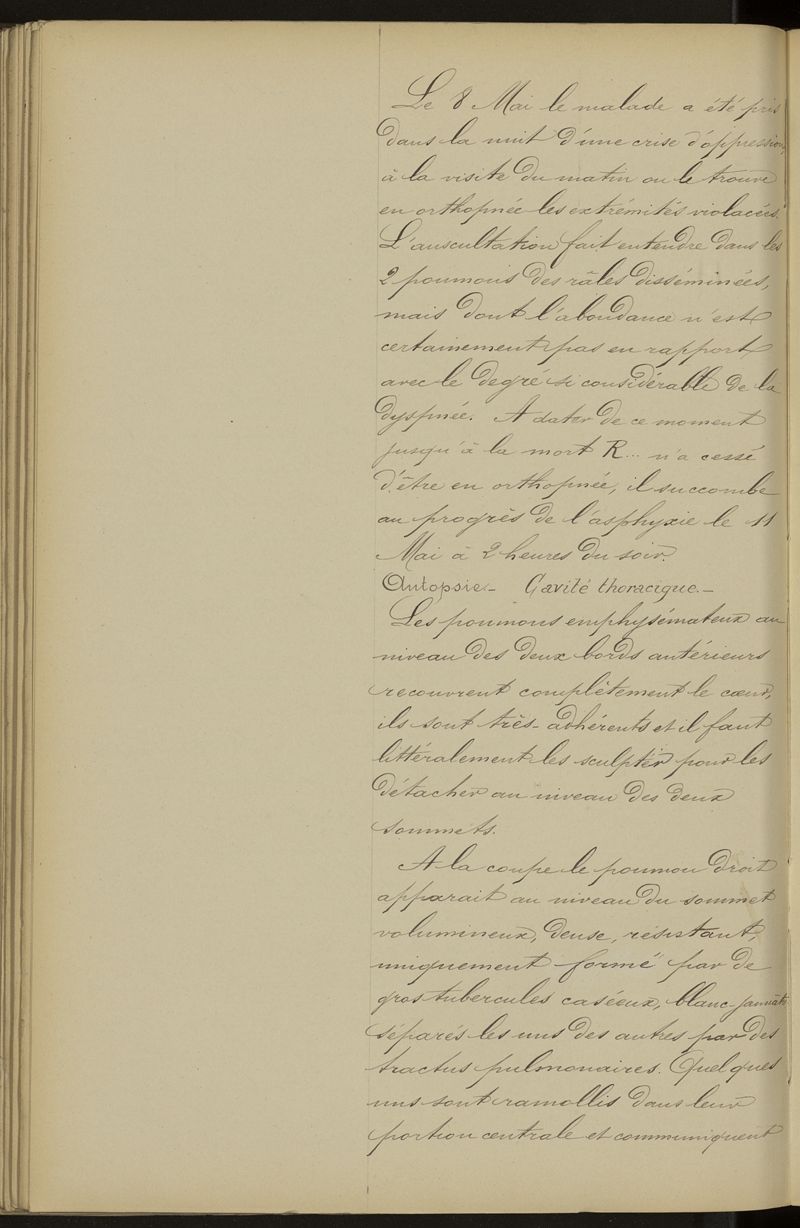 Le 8 Mai le malade a été pris
dans la nuit d'une crise d'oppression,
à la visite du matin on le trouve
en orthopnée les extrémités violacées.
L'auscultation fait entendre dans les
2 poumons des râles disséminées,
mais dont l'abondance n'est
certainement pas en rapport
avec le degré si considérable de la
dyspnée. A dater de ce moment
jusqu'à la mort R... n'a cessé
d'être en orthopnée, il succombe
au progrès de l'asphyxie le 11
Mai à 2 heures du soir.
Autopsie.- Cavité thoracique.-
Les poumons emphysémateux au
niveau des deux bords antérieurs
recouvrent complètement le cœur,
ils sont très-adhérents et il faut
littéralement les sculpter pour les
détacher au niveau des deux
sommets.
A la coupe le poumon droit
apparait au niveau du sommet
volumineux, dense, résistant,
uniquement formé par de
gros tubercules caséeux, blanc-jaunâtr
séparés les uns des autres par des
tractus pulmonaires. Quelques
uns sont ramollis dans leur
portion centrale et communiquent